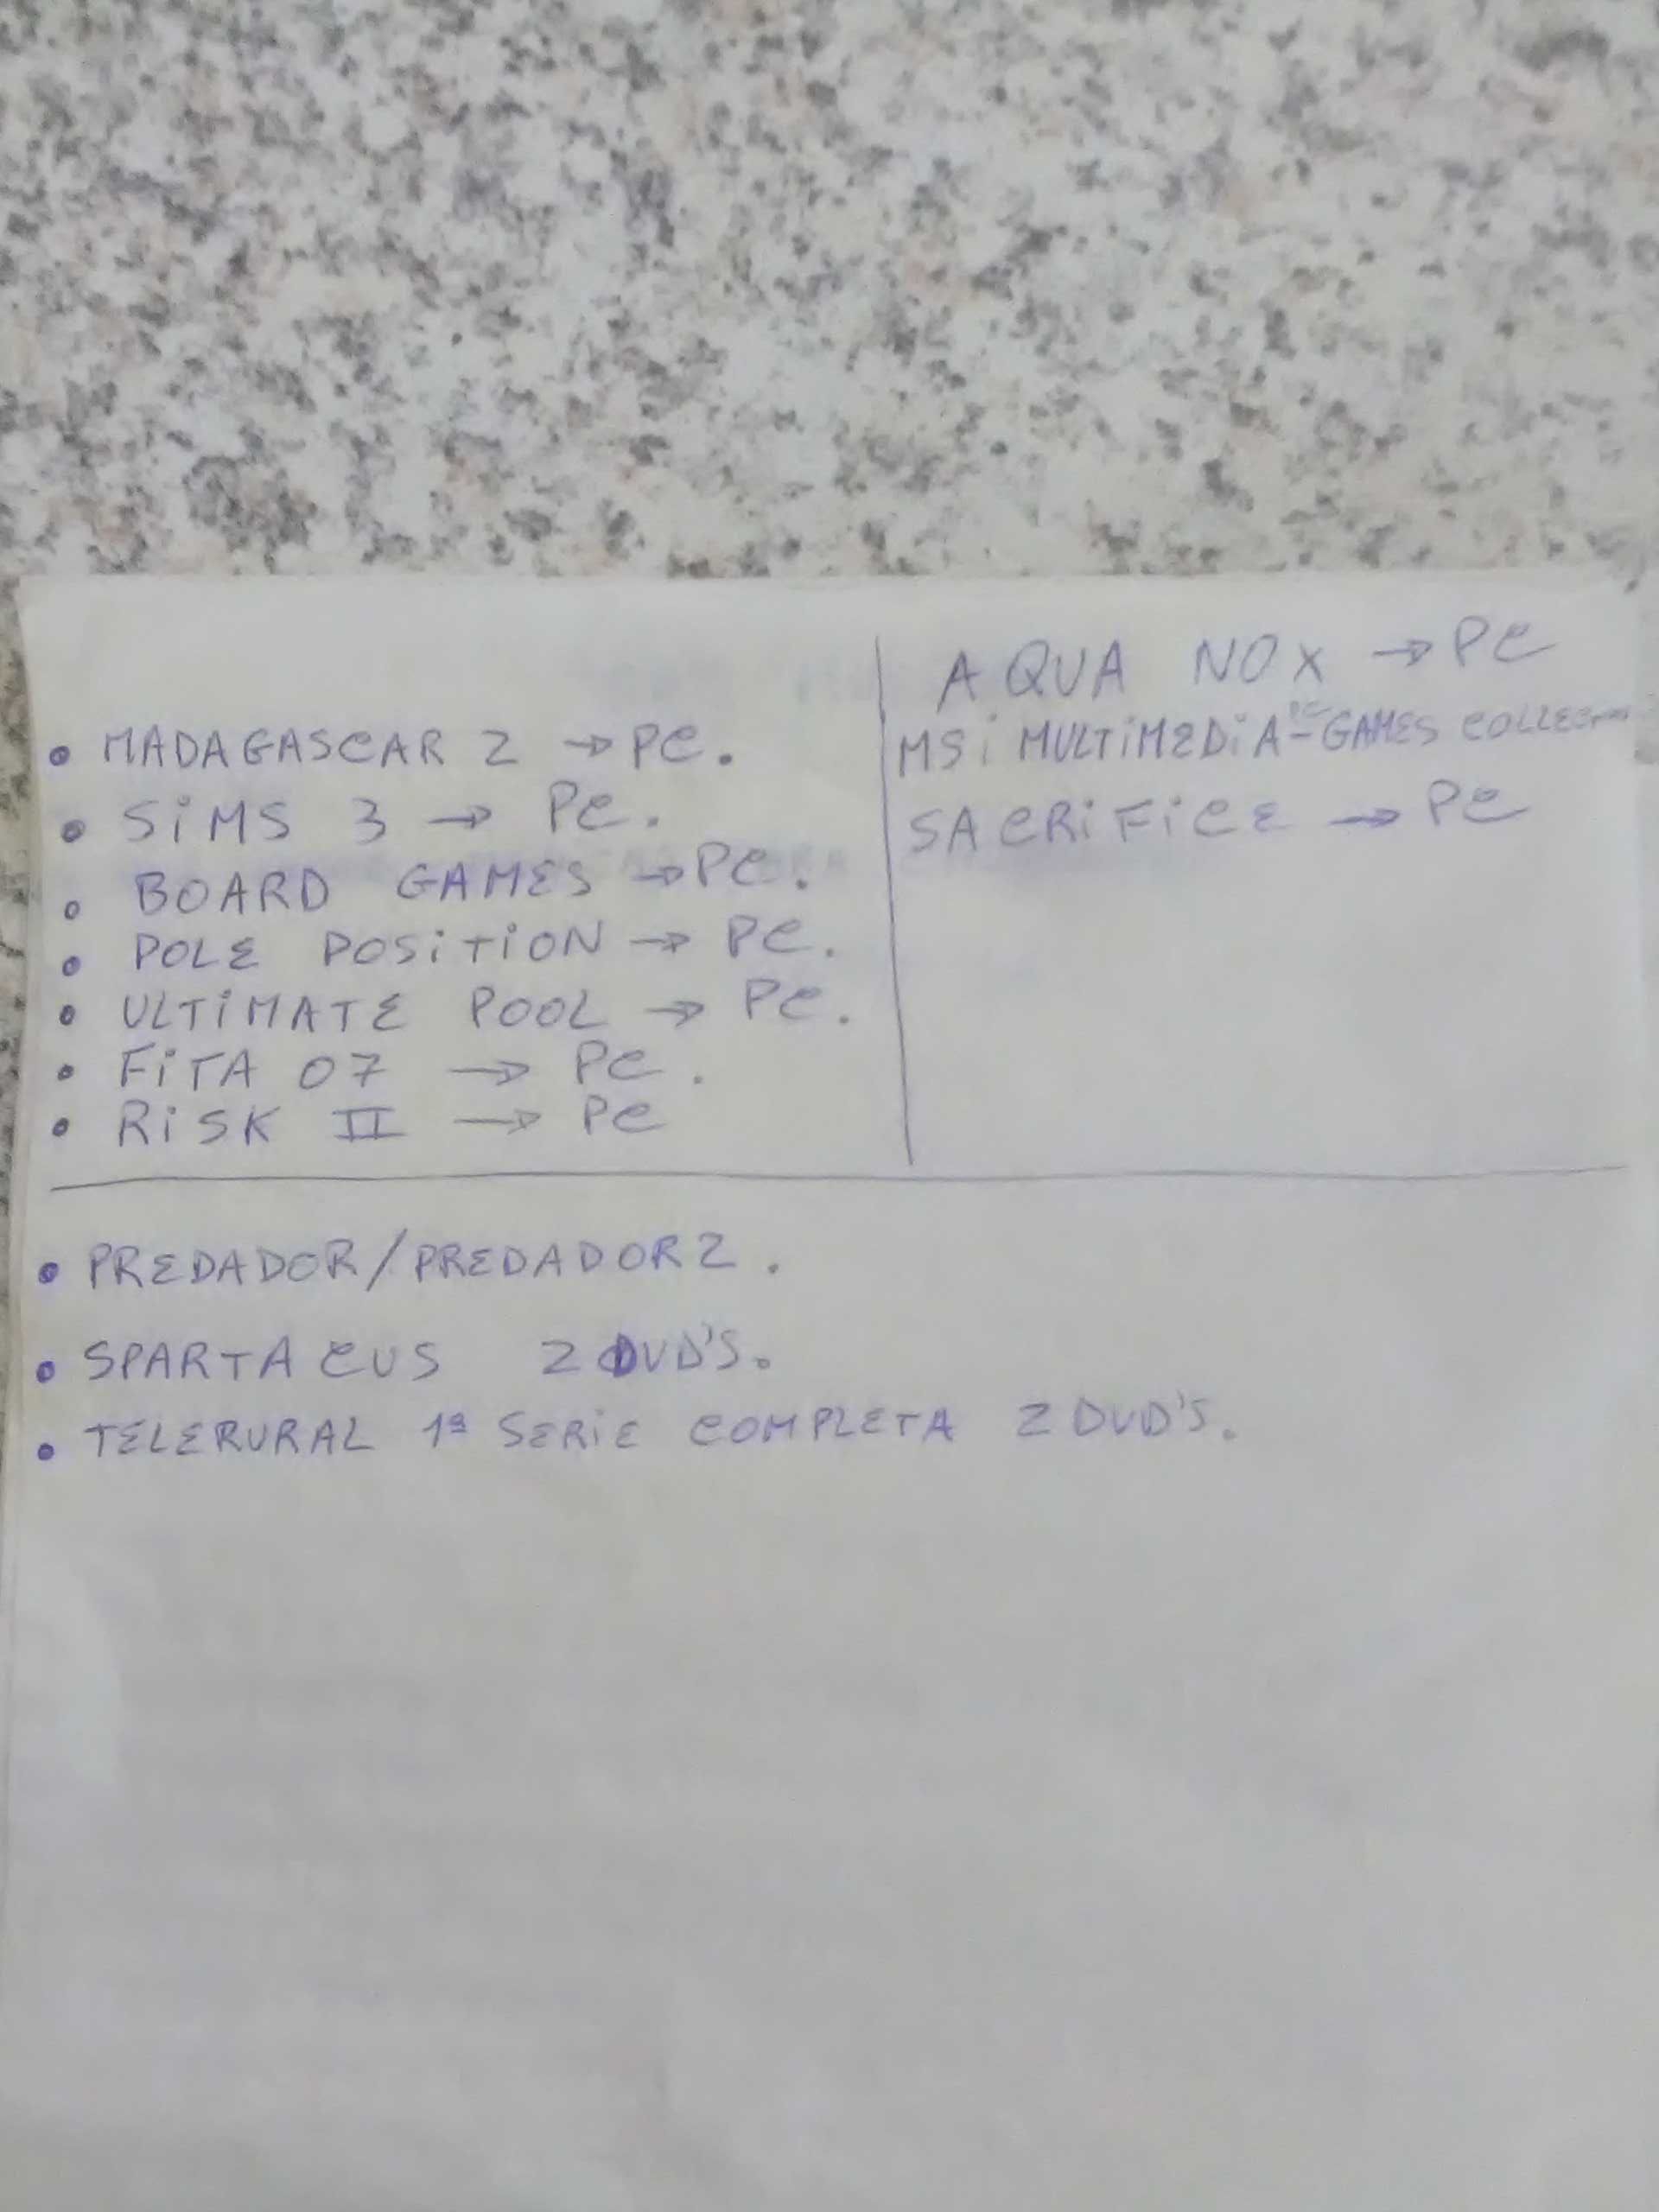 • MADAGASCAR 2 → PC.
• SiMS 3 → PC.
• BOARD GAMES → PC.
• POLE POSiTiON → PC.
• ULTiMATE POOL → PC.
• FiTA 07 → PC.
• RiSK II → PC
AQUA NOX → PC
MSi MULTiMEDiA - GAMES
SACRiFiCE → PC
• PREDADOR/PREDADOR 2.
• SPARTACUS 2 DVD'S.
• TELERURAL 1ª SERiE COMPLETA 2 DVD'S.